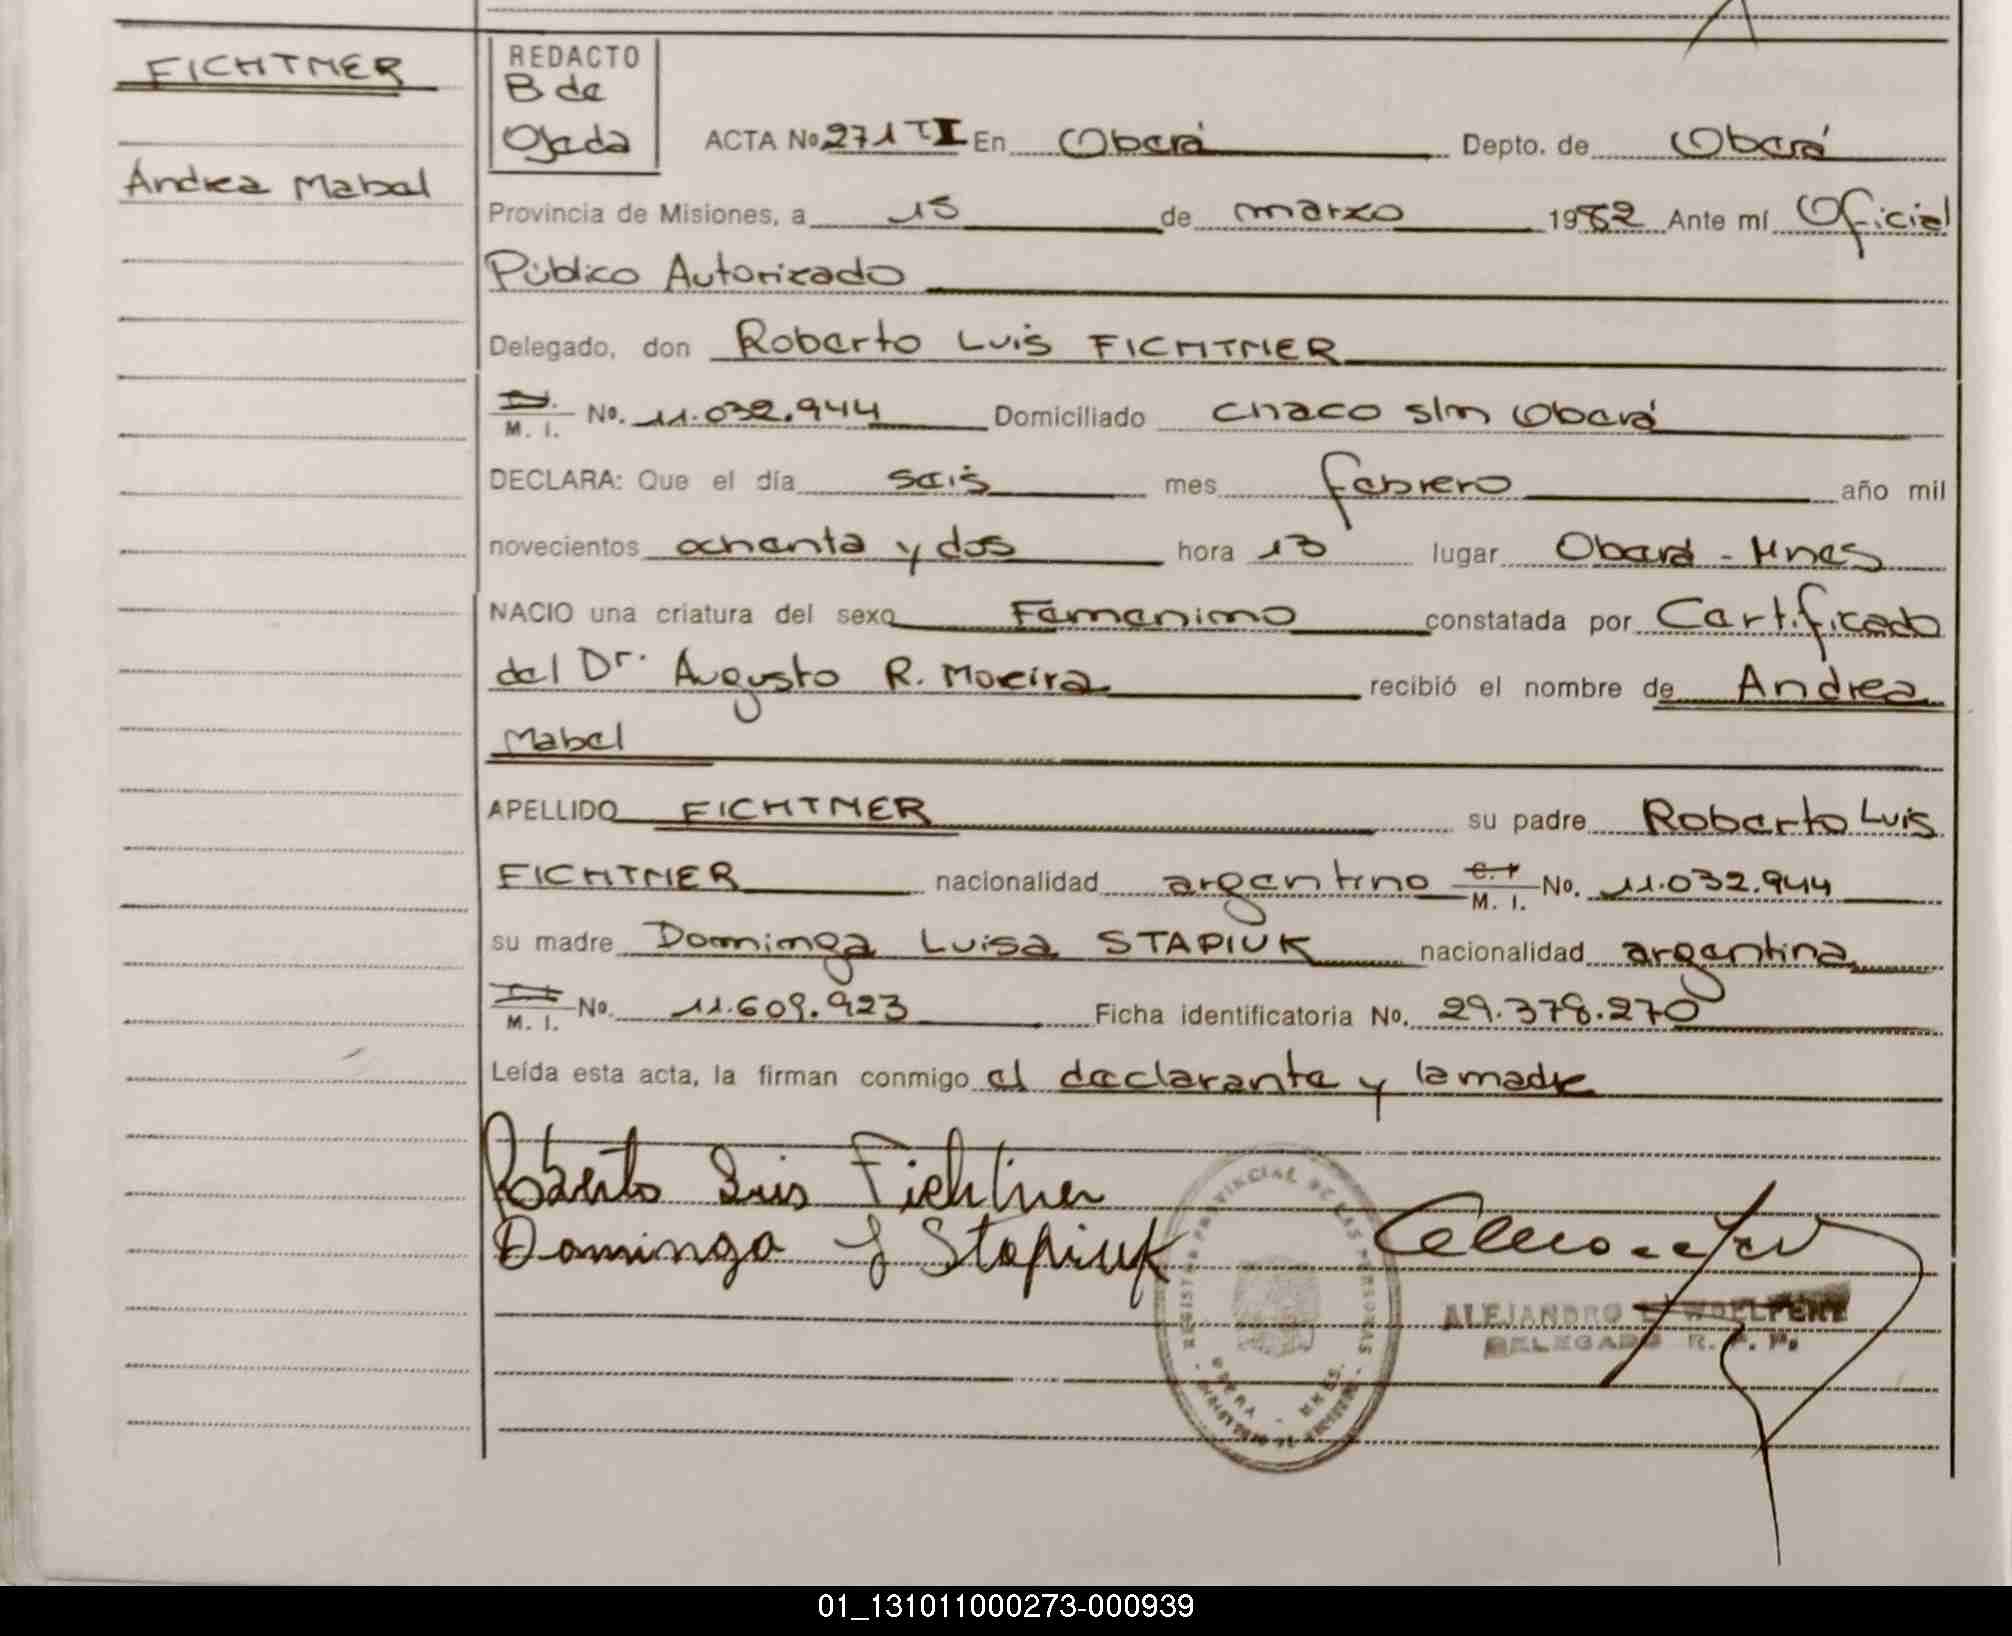 FICHTNER
Andrea Mabel
REDACTO
B de
Ojeda
ACTA No 271 TI En Oberá Depto. de Oberá
Provincia de Misiones, a 15 de marzo 1982 Ante mí Oficial
Público Autorizado
Delegado, don Roberto Luis FICHTNER
M. I. No. 11.032.944 Domiciliado Chaco s/n Oberá
DECLARA: Que el día seis mes febrero año mil
novecientos ochenta y dos hora 13 lugar Oberá - Mnes
NACIO una criatura del sexo Femenino constatada por Certificado
del Dr. Augusto R. Moreira recibió el nombre de Andrea
Mabel
APELLIDO FICHTNER su padre Roberto Luis
FICHTNER nacionalidad argentino C. I. M. I. No. 11.032.944
su madre Dominga Luisa STAPIUK nacionalidad argentina
M. I. No. 11.609.923 Ficha identificatoria No. 29.378.270
Leída esta acta, la firman conmigo el declarante y la madre
Roberto Luis Fichtner
Dominga L Stapiuk
REGISTRO PROVINCIAL DE LAS PERSONAS
OBERA - MNES.
ALEJANDRO
DELEGADO R. P. P.
01_131011000273-000939